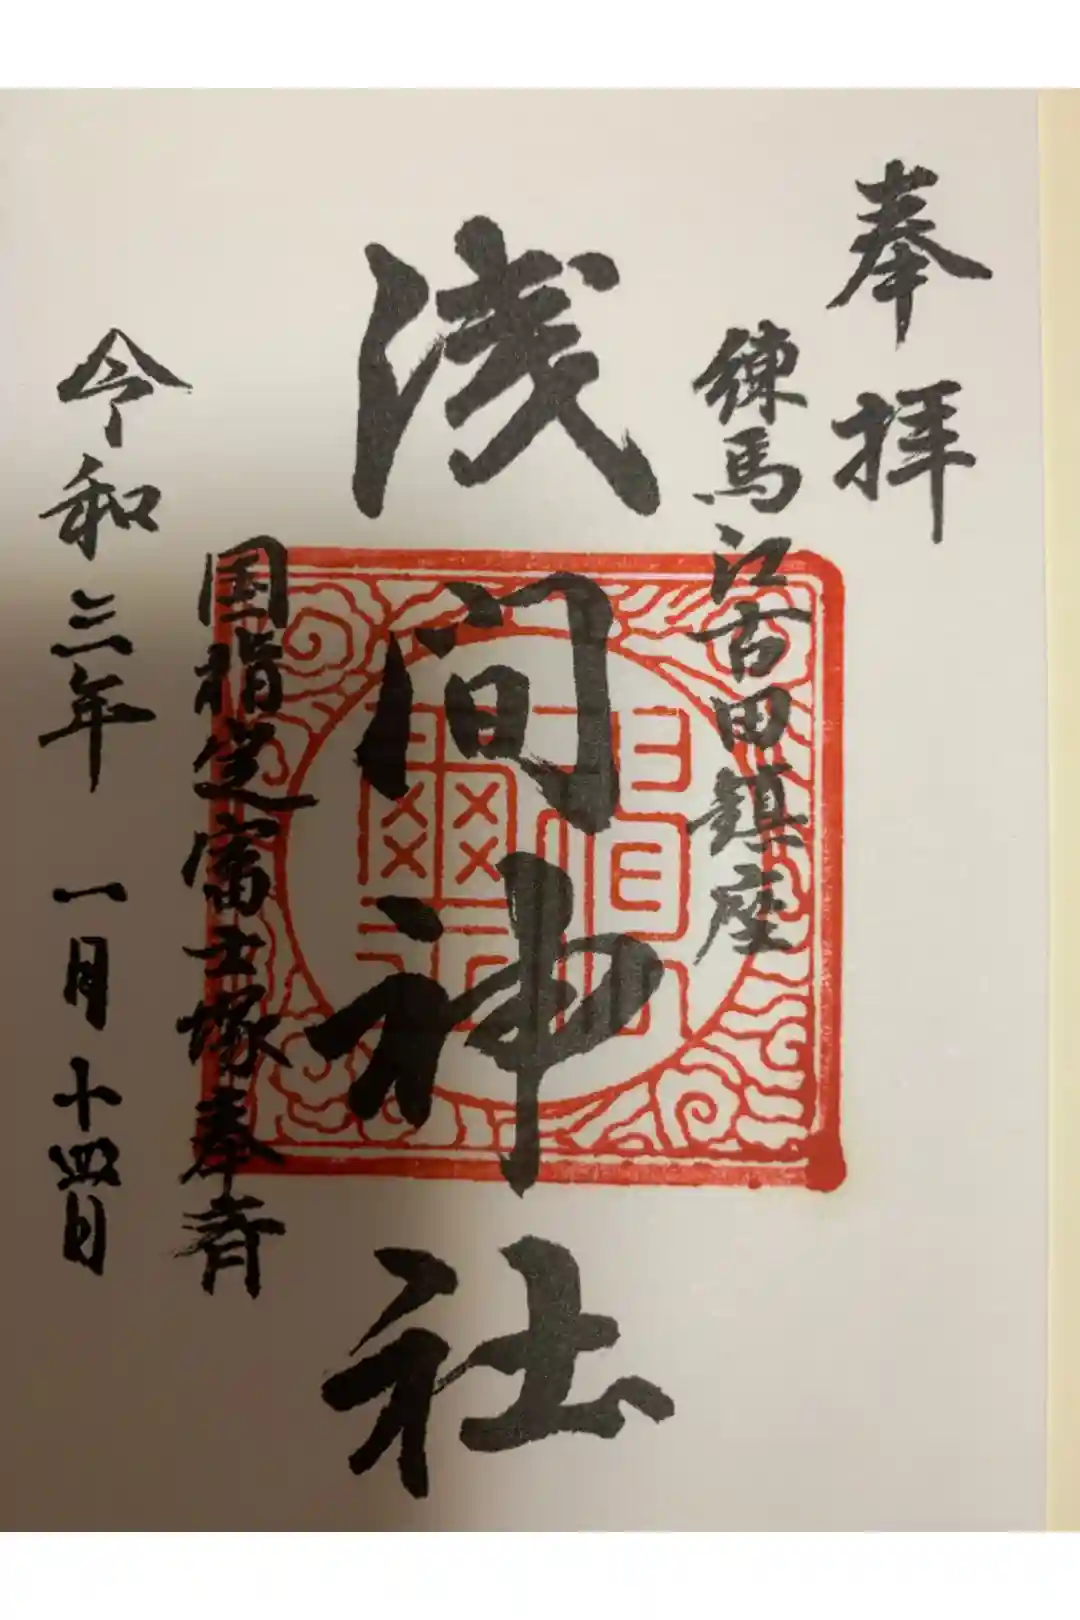 奉拝
練馬江古田鎮座
浅間神社
国指定富士塚奉斉
令和三年 一月十四日